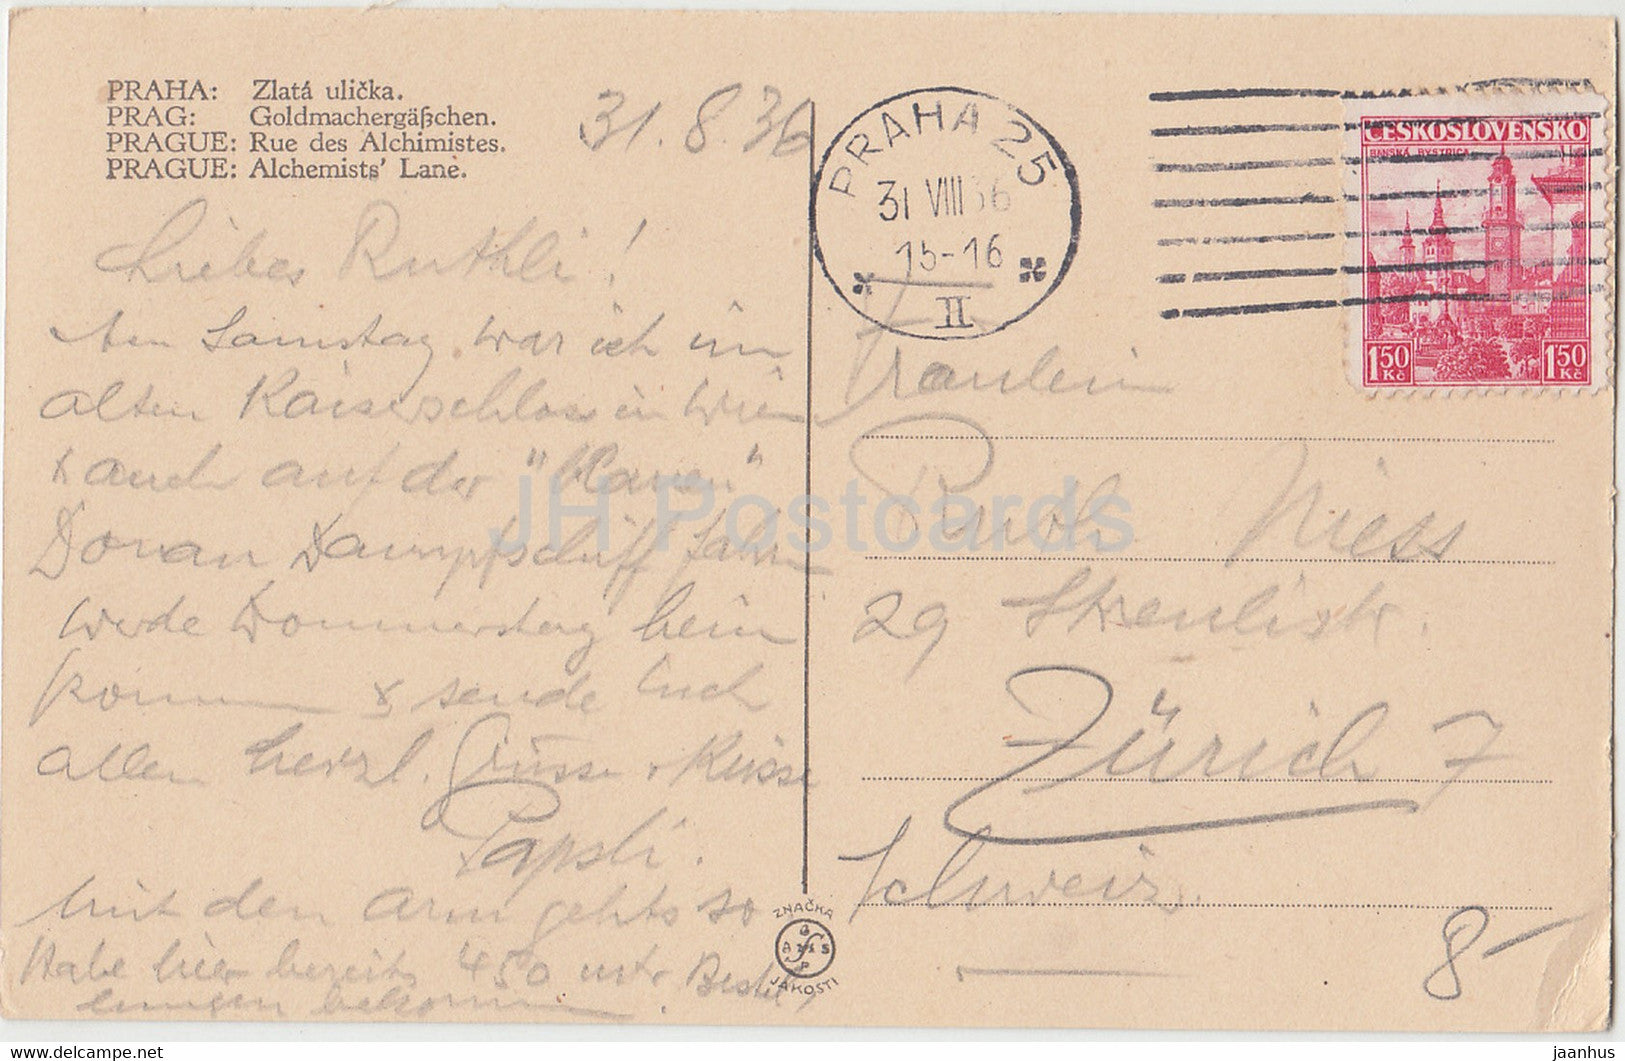 PRAHA: Zlatá ulička.
PRAG: Goldmachergäßchen.
PRAGUE: Rue des Alchimistes.
PRAGUE: Alchemists' Lane.
31.8.36
Liebes Ruthli!
Am Samstag war ich im
alten Kaiserschloss in Wien
& auch auf der "blauen"
Donau Dampfschiff fahren
werde Donnerstag heim
kommen & sende Euch
allen herzl. Grüsse & Küsse
Papsli.
Mit dem Arm gehts so
Habe hier bereits 450 mtr Bestel
lungen bekommen
PRAHA 25
31 VIII 36
15-16
II
ČESKOSLOVENSKO
BANSKÁ BYSTRICA
1.50 Kč 1.50 Kč
Fräulein
Ruth Niess
29
Zürich 7
Schweiz.
8-
ZNAČKA
JAKOSTI
JH Postcards
www.delcampe.net
jaanhus